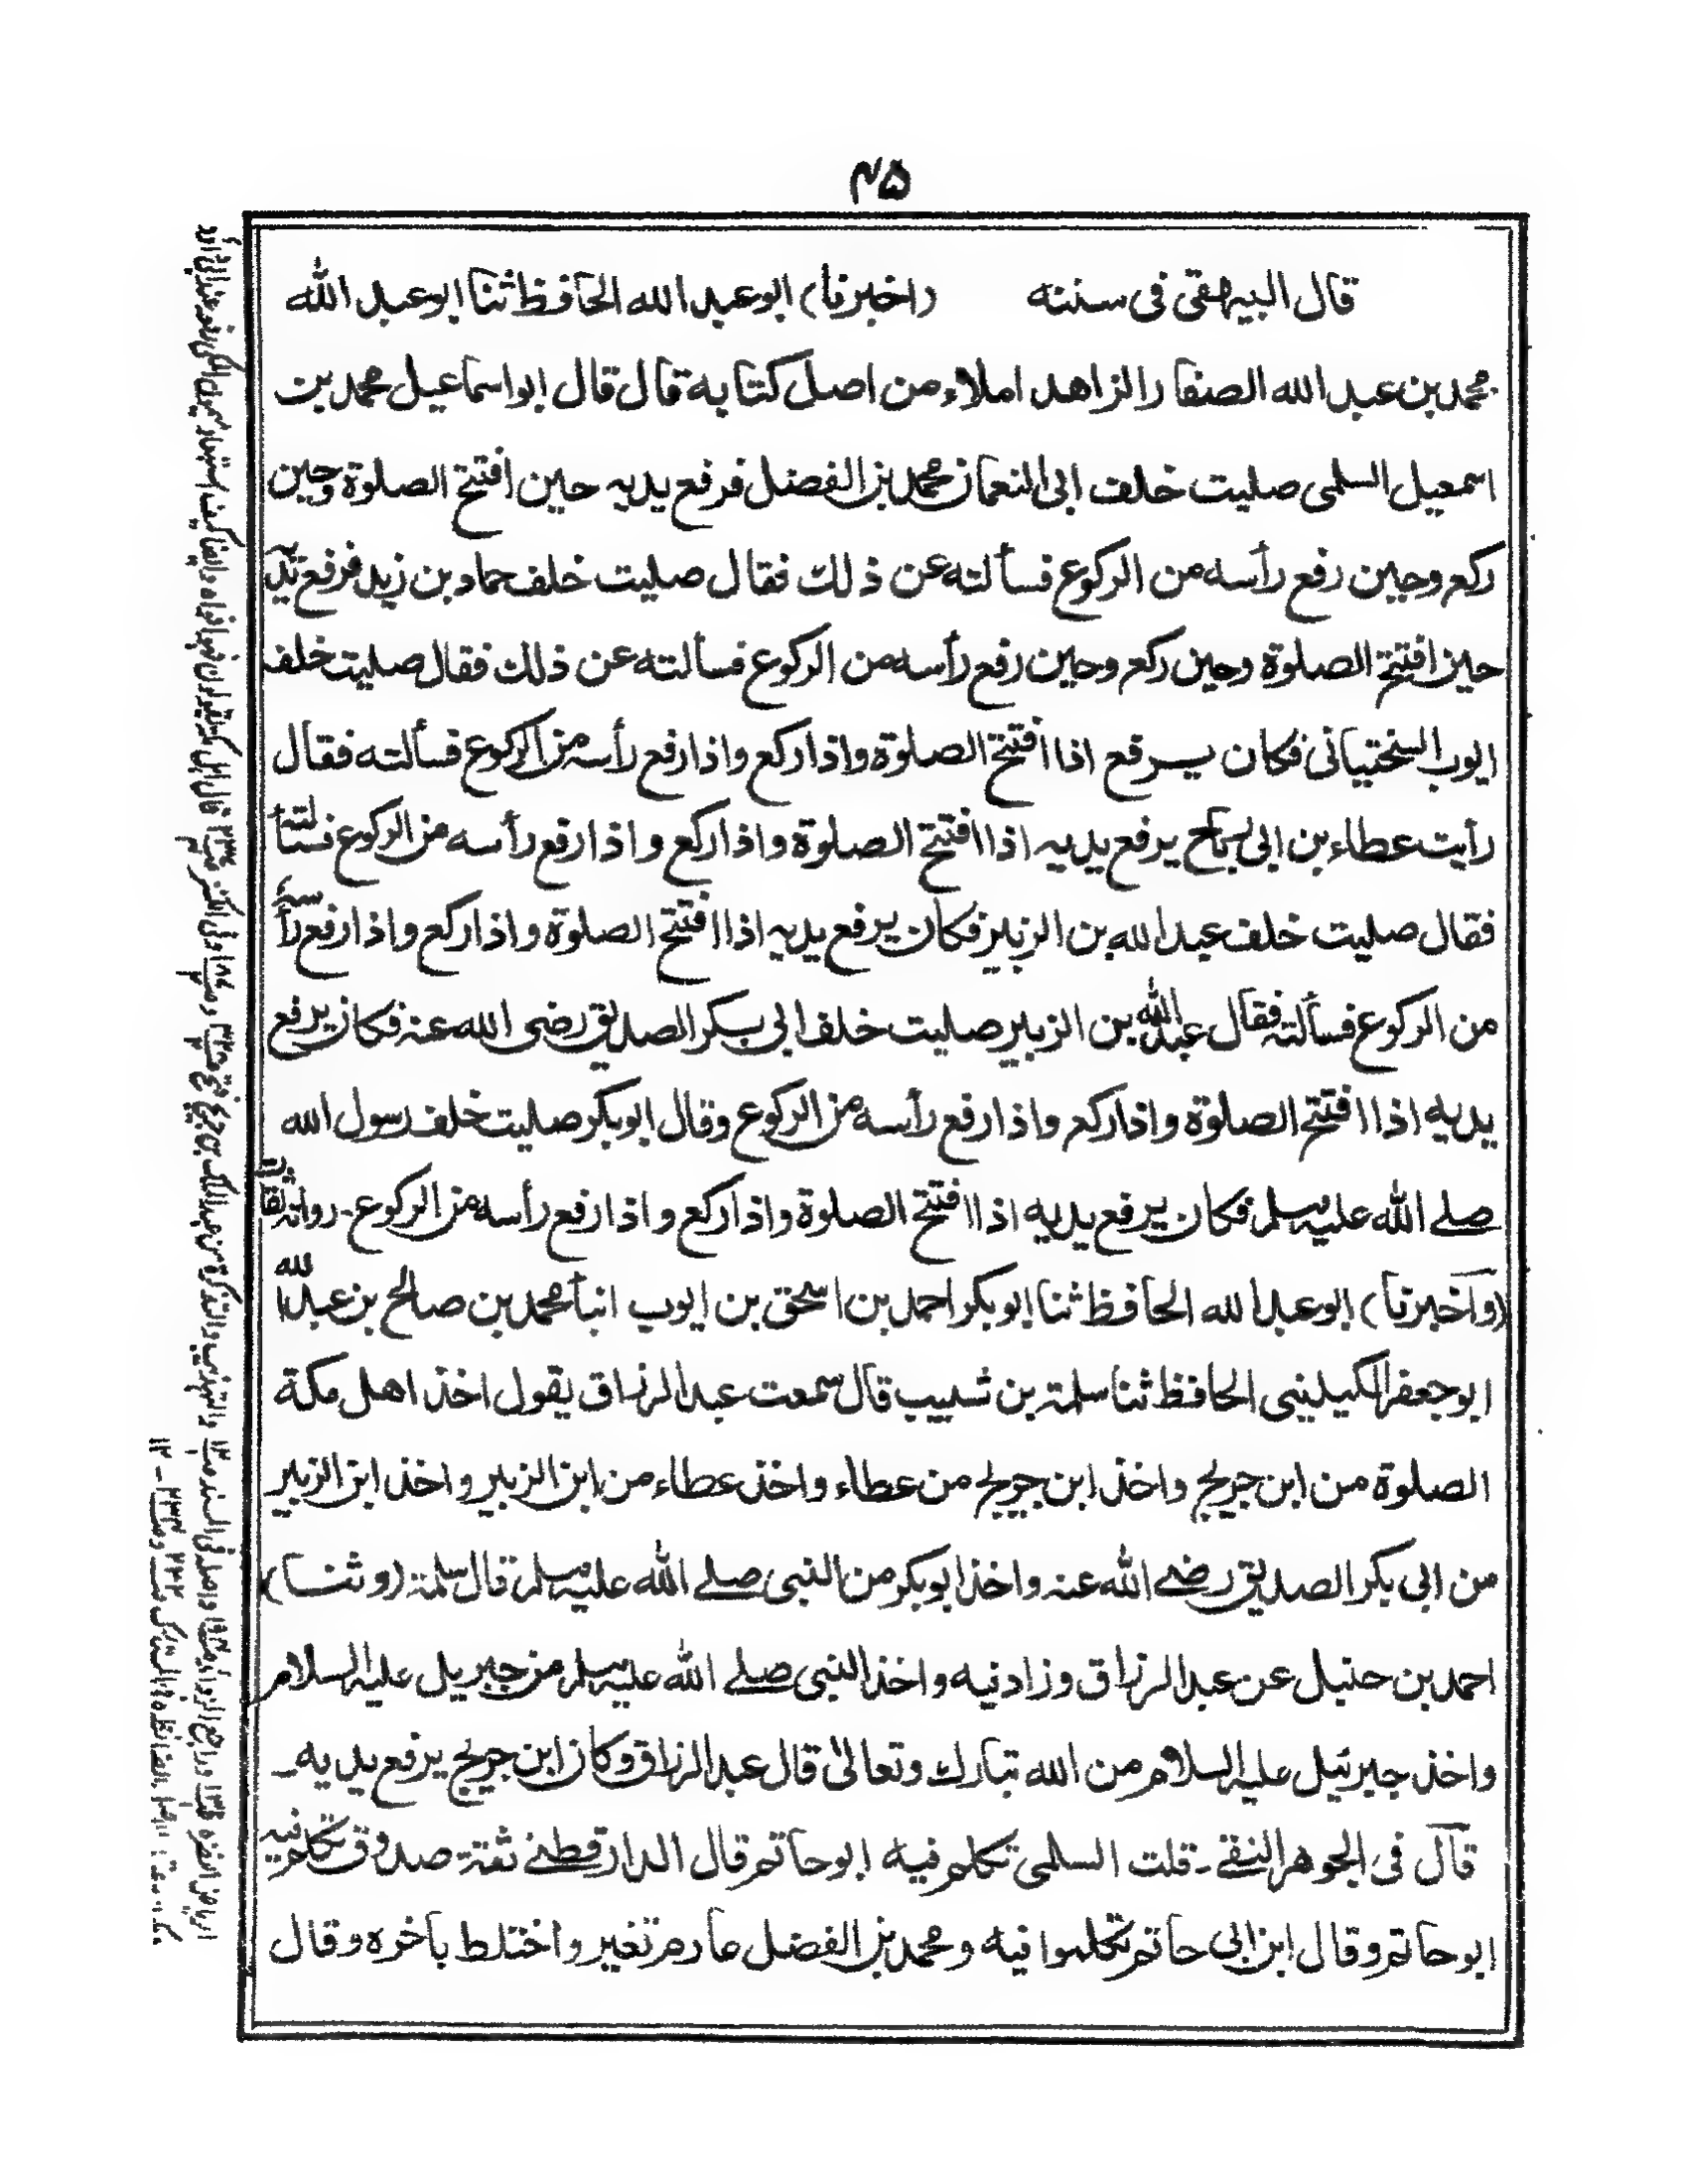 ۴۵
قال البيهقى فى سننه (اخبرنا) ابو عبد الله الحافظ ثنا ابو عبد الله
محمد بن عبد الله الصفار الزاهد املاء من اصل كتابه قال قال ابو اسماعيل محمد بن
اسمعيل السلمى صليت خلف ابى النعمان محمد بن الفضل فرفع يديه حين افتتح الصلوة وحين
ركع وحين رفع رأسه من الركوع فسألته عن ذلك فقال صليت خلف حماد بن زيد فرفع يديه
حين افتتح الصلوة وحين ركع وحين رفع رأسه من الركوع فسألته عن ذلك فقال صليت خلف
ايوب السختيانى فكان يرفع اذا افتتح الصلوة واذا ركع واذا رفع رأسه من الركوع فسألته فقال
رأيت عطاء بن ابى رباح يرفع يديه اذا افتتح الصلوة واذا ركع واذا رفع رأسه من الركوع فسألته
فقال صليت خلف عبد الله بن الزبير فكان يرفع يديه اذا افتتح الصلوة واذا ركع واذا رفع رأسه
من الركوع فسألته فقال عبد الله بن الزبير صليت خلف ابى بكر الصديق رضى الله عنه فكان يرفع
يديه اذا افتتح الصلوة واذا ركع واذا رفع رأسه من الركوع وقال ابو بكر صليت خلف رسول الله
صلے الله عليه وسلم فكان يرفع يديه اذا افتتح الصلوة واذا ركع واذا رفع رأسه من الركوع - رواته ثقات
(واخبرنا) ابو عبد الله الحافظ ثنا ابو بكر احمد بن اسحق بن ايوب انبأ محمد بن صالح بن عبد الله
ابو جعفر الكيلينى الحافظ ثنا سلمة بن شبيب قال سمعت عبد الرزاق يقول اخذ اهل مكة
الصلوة من ابن جريج واخذ ابن جريج من عطاء واخذ عطاء من ابن الزبير واخذ ابن الزبير
من ابى بكر الصديق رضے الله عنه واخذ ابو بكر من النبى صلے الله عليه وسلم قال سلمة (وثنا)
احمد بن حنبل عن عبد الرزاق وزاد فيه واخذ النبى صلے الله عليه وسلم من جبريل عليه السلام
واخذ جبرئيل عليه السلام من الله تبارك وتعالىٰ قال عبد الرزاق وكان ابن جريج يرفع يديه -
قال فى الجوهر النقے - قلت السلمى تكلم فيه ابو حاتم قال الدارقطنے ثقة صدوق تكلم فيه
ابو حاتم وقال ابن ابى حاتم تكلموا فيه ومحمد بن الفضل عارم تغير واختلط بأخره وقال